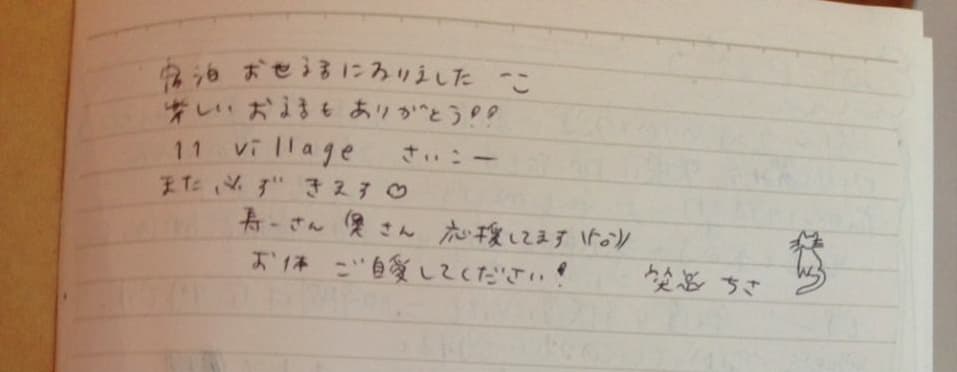 宿泊 おせるまになりました ここ
楽しい おまるもありがとう!!
11 village さいこー
また 必ず きます♡
寿一さん 奥さん 応援してます
お体 ご自愛してください!
ちさ